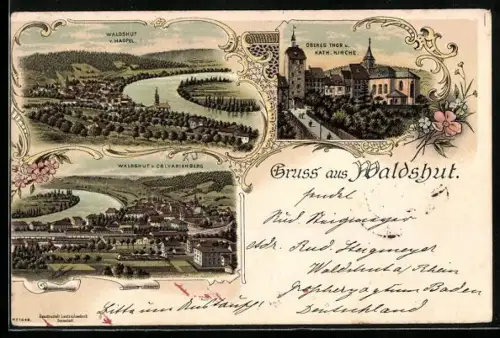 WALDSHUT
v. HASPEL.
OBERES THOR u.
KATH. KIRCHE
WALDSHUT v. CALVARIENBERG.
Gruss aus Waldshut.
sendet
Rud.
Adr. Rud. Stegmeyer
Waldshut a/ Rhein
Grossherzogtum Baden
Deutschland
Bitte um Austausch!